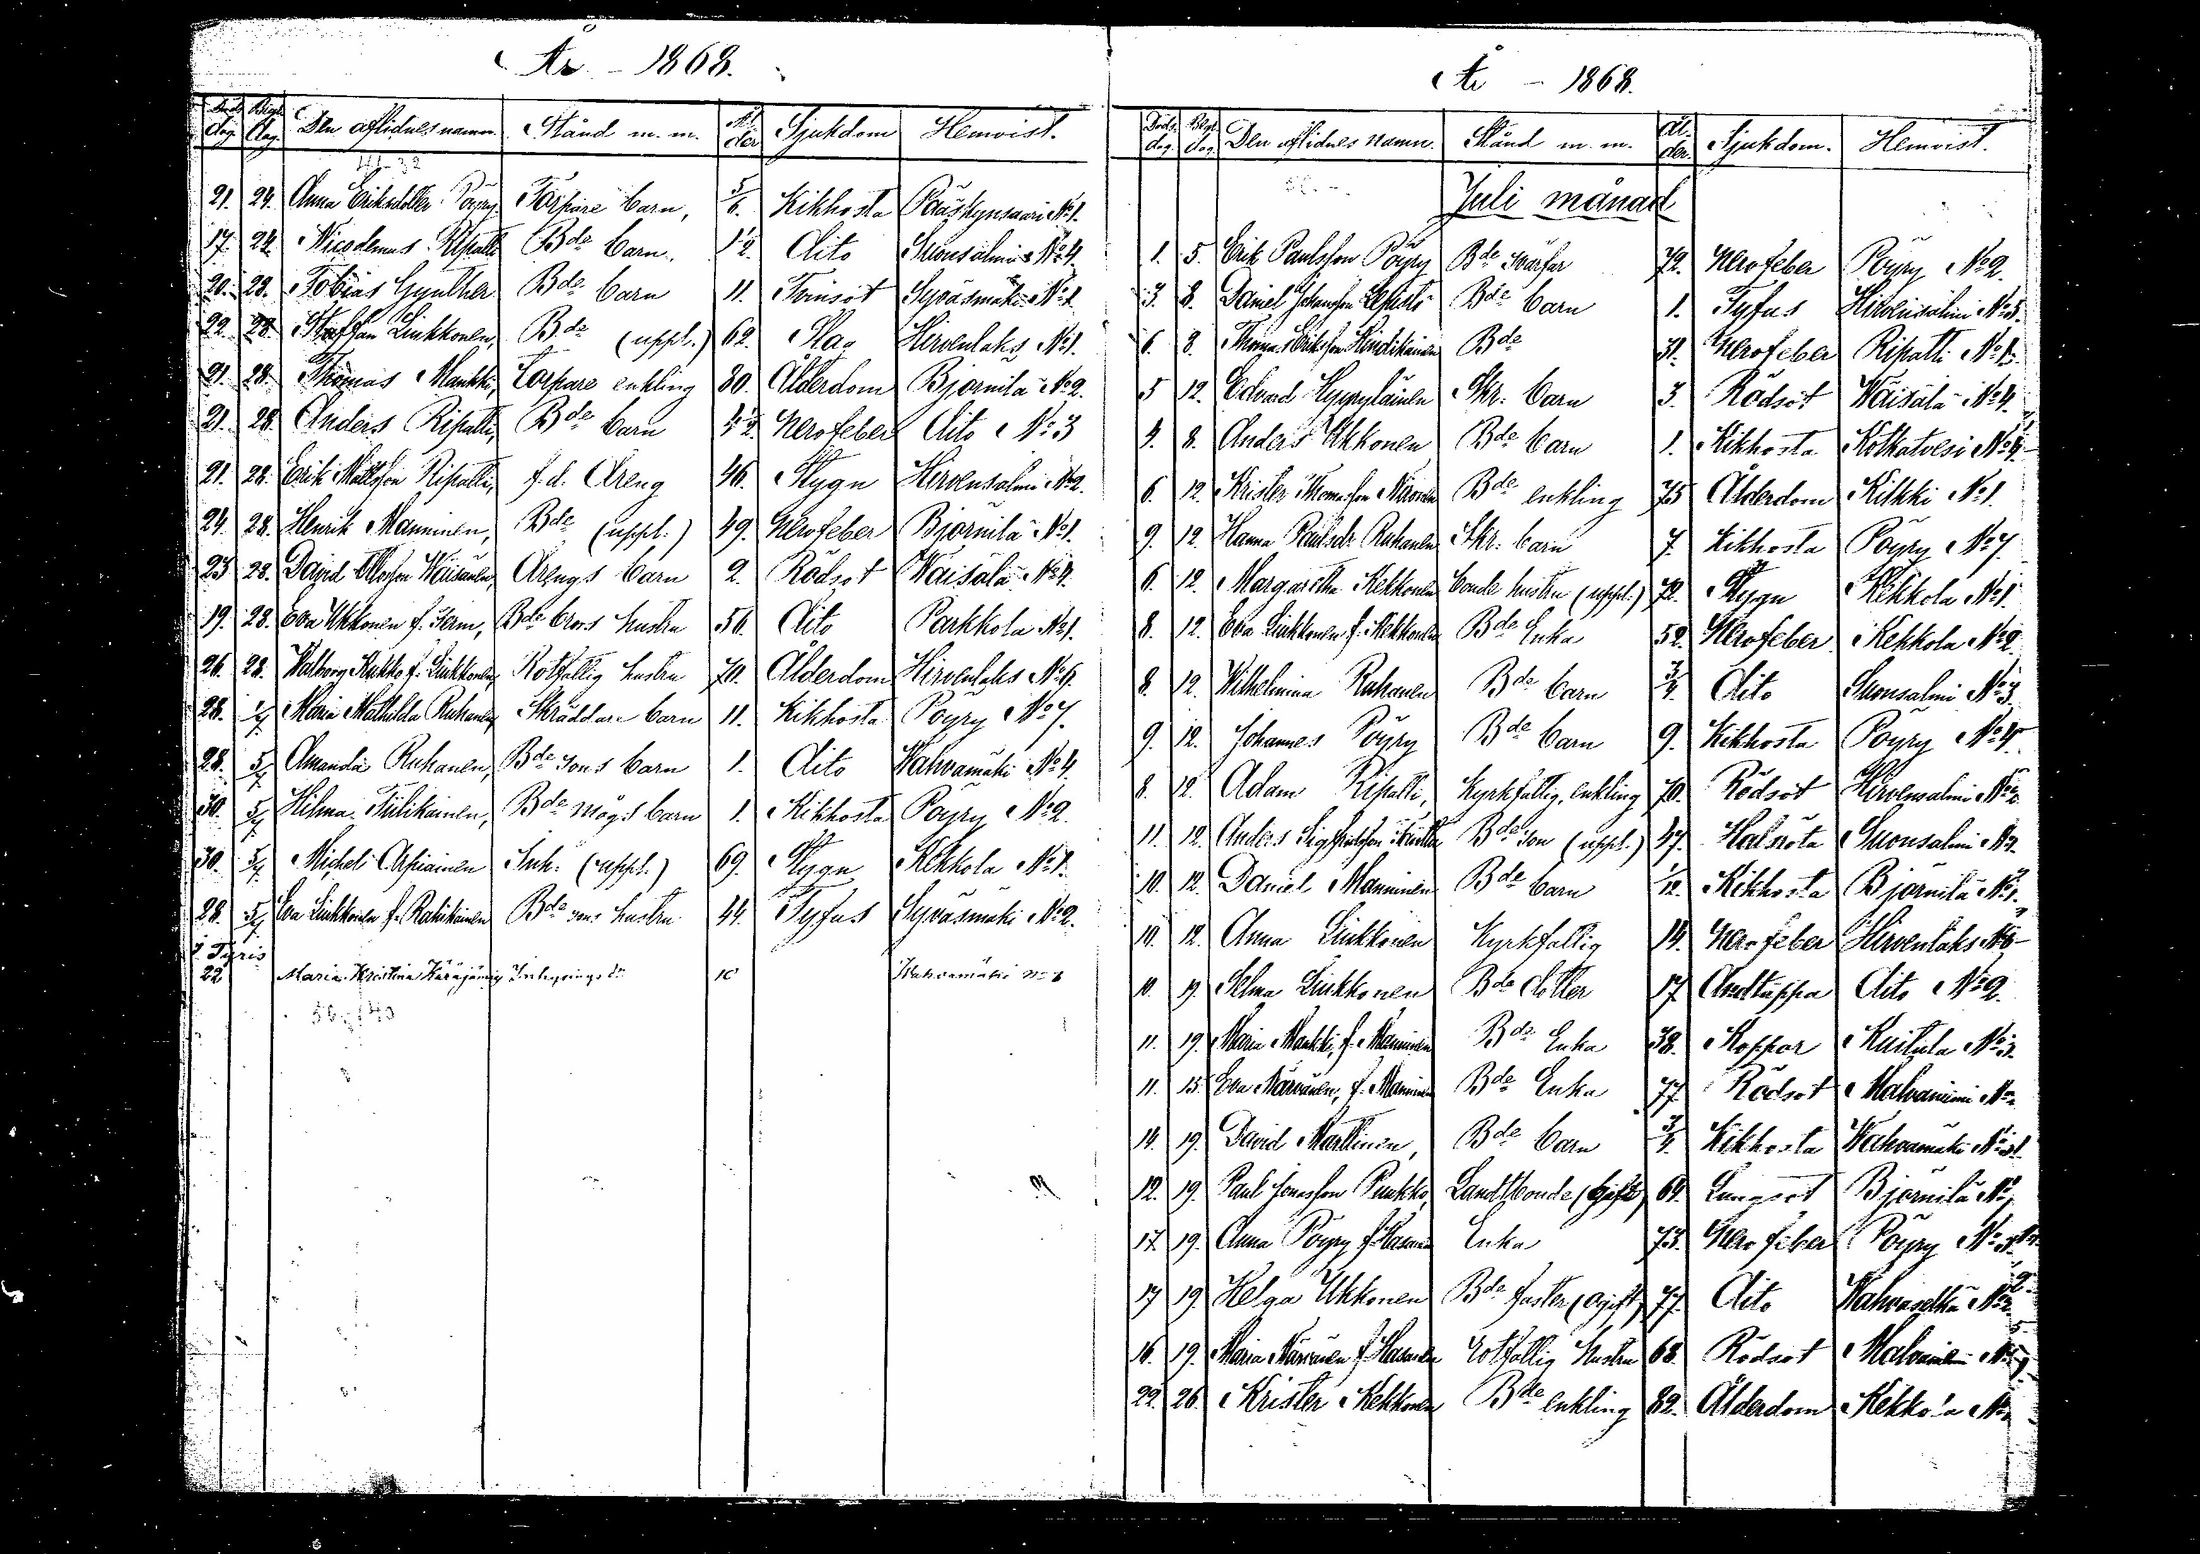 År - 1868.
Döds dag. Begr. dag. Den aflidnes namn Stånd m. m. Ål der Sjukdom Hemvist.
21. 24. Anna Eriksdotter Pöyry Torpare barn, 5/6. Kikhosta Pääskynsaari No 1.
17. 24. Nicodemus Ripatti Bde barn. 1 1/2. Dito Suonsalmi No 4.
20. 28. Tobias Gynther Bde barn 11. Tvinsot Syväsmäki No 1.
22. 28. Staffan Liukkonen, Bde (uppl.) 62. Slag Hirvenlaks No 1.
21. 28. Thomas Maukki, Torpare enkling 80. Ålderdom Björnilä No 2.
21. 28. Anders Ripatti, Bde barn Nervfeber Dito No 3
21. 28. Erik Mattsson Ripatti, f.d. Dreng 46. Stygn Hirvensalmi No 2.
24. 28. Henrik Manninen, Bde (uppl.) 49. Nervfeber Björnilä No 1.
23 28. David Väisänen, Drengs barn 2. Rödsot Väisälä No 4.
19. 28. Eva Ukkonen f. Bde brors hustru 56. Dito Parkkola No 1.
26. 28. Walborg Kukko f. Liukkonen, Rotfallig hustru 70. Ålderdom Hirvenlaks No 6.
28. 1/7 Maria Mathilda Ruhanen, Skräddare barn 11. Kikhosta Pöyry No 7.
28. 5/7 Amanda Ruhanen, Bde sons barn 1. Dito Wahvamäki No 4.
30. 5/7 Hilma Tiilikainen, Bde mågs barn 1. Kikhosta Pöyry No 2.
30. 5/7 Michel Arpiainen Inh. (uppl.) 69. Stygn Kekkola No 1.
28. 5/7 Eva Liukkonen f. Rahikainen Bde sons hustru 44. Tyfus Syväsmäki No 2.
22 Maria Kristina Inhysings dr 10 Wahvamäki No
År - 1868.
Döds dag. Begr. dag. Den aflidnes namn. Stånd m. m. Ål der. Sjukdom. Hemvist.
Juli månad
1. 5. Erik Paulsson Pöyry Bde svärfar 72. Nervfeber Pöyry No 2.
3. 8. Daniel Johansson Lepistö Bde barn 1. Tyfus Hirvensalmi No 5.
6. 8. Thomas Eriksson Bde 31. Nervfeber Ripatti No 1.
5 12. Edvard Hyyryläinen Skr. barn 3. Rödsot Wäisälä No 4.
4. 8. Anders Ukkonen Bde barn 1. Kikhosta Kotkatvesi No 4.
6. 12. Krister Thomasson Närvänen Bde enkling 75 Ålderdom Kilkki No 1.
9. 12. Hanna Paulsdr Ruhanen Skr. barn 7. Kikhosta Pöyry No 7.
6. 12. Margaretha Kekkonen bonde hustru (uppl.) 72. Stygn Kekkola No 1.
8. 12. Eva Liukkonen f. Kekkonen Bde Enka 52. Nervfeber Kekkola No 2
8. 12. Wilhelmina Ruhanen Bde barn 3/4. Dito Suonsalmi No 3.
9. 12. Johannes Pöyry Bde barn 9. Kikhosta Pöyry No 4.
8. 12. Adam Ripatti, Kyrkfattig, enkling 70. Rödsot Hirvensalmi No 2
11. 12. Anders Bde son (uppl.) 47. Halsröta Suonsalmi No 2.
10. 12. Daniel Manninen Bde barn 1/12. Kikhosta Björnilä No 1.
10. 12. Anna Liukkonen Kyrkfattig 14. Nervfeber Hirvenlaks No 6
10. 19. Selma Liukkonen Bde dotter 17 Andtäppa Dito No 2.
11. 19. Maria Maukki, f. Manninen Bde Enka 38. Koppor Kuitula No 3.
11. 15. Eva Närvänen, f. Manninen Bde Enka 77. Rödsot Malvaniemi No
14. 19. David Marttinen, Bde barn 3/4. Kikhosta Wahvamäki No
12. 19. Paul Jonasson Puukko, Landtbonde (gift) 64. Lungsot Björnilä No
17. 19. Anna Pöyry f. Hasanen Enka 73. Nervfeber Pöyry No
17 19. Helga Ukkonen Bde faster (ogift) 77. Dito Wahvaselkä No 2.
16. 19. Maria Närvänen f. Hasanen Rotfallig hustru 68. Rödsot Malvaniemi No
22. 26. Krister Kekkonen Bde enkling 82. Ålderdom Kekkola No